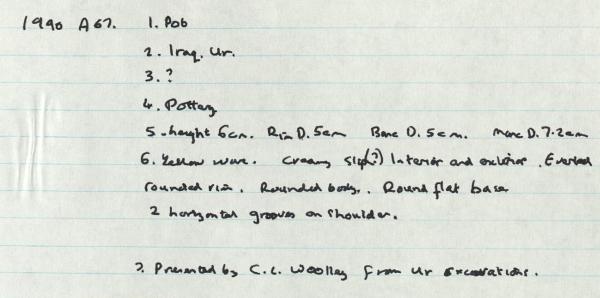 1990 A67. 1. Pob
2. Iraq. Ur.
3. ?
4. Pottery
5. height 6cm. Rim D. 5cm Base D. 5cm. Max D. 7.2cm
6. Yellow ware. Creamy slip(?) Interior and exterior. Everted
rounded rim. Rounded body. Round flat base
2 horizontal grooves on shoulder.
7. Presented by C.L. Woolley from Ur excavations.